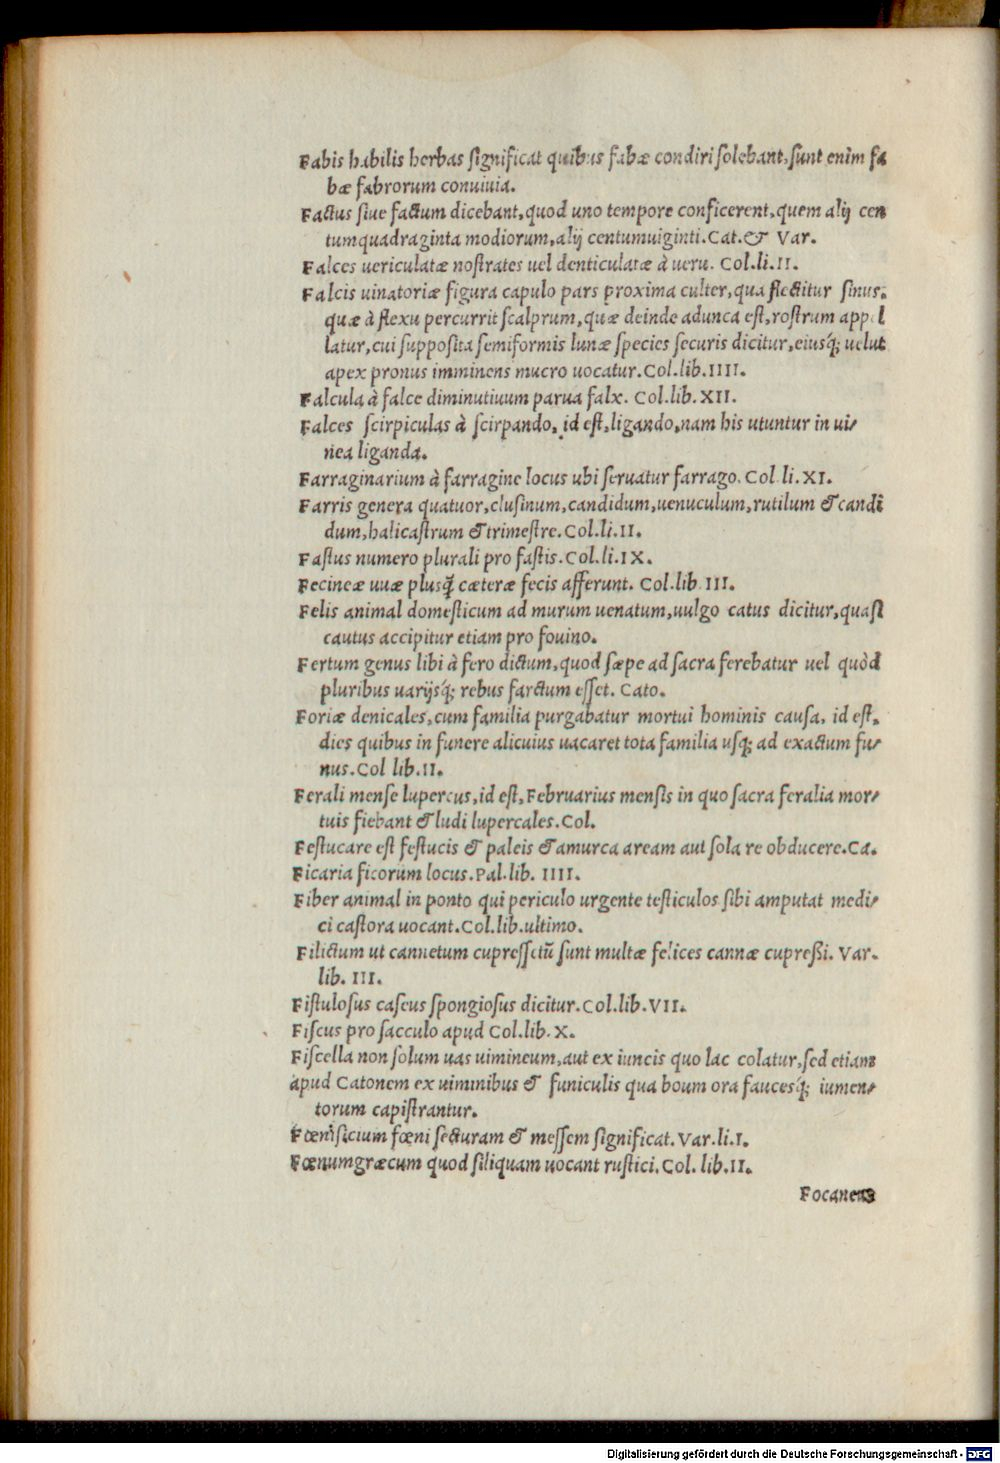 Fabis habilis herbas ſignificat quibus fabæ condiri ſolebant, ſunt enim fa
bæ fabrorum conuiuia.
Factus ſiue factum dicebant, quod uno tempore conficerent, quem alij cen
tumquadraginta modiorum, alij centumuiginti. Cat. & Var.
Falces uericulatæ noſtrates uel denticulatæ à ueru. Col. li. II.
Falcis uinatoriæ figura capulo pars proxima culter, qua flectitur ſinus,
quæ à flexu percurrit ſcalprum, quæ deinde adunca eſt, roſtrum appel
latur, cui ſuppoſita ſemiformis lunæ ſpecies ſecuris dicitur, eiusq́; uelut
apex pronus imminens mucro uocatur. Col. lib. IIII.
Falcula à falce diminutiuum parua falx. Col. lib. XII.
Falces ſcirpiculas à ſcirpando, id eſt, ligando, nam his utuntur in ui-
nea liganda.
Farraginarium à farragine locus ubi ſeruatur farrago. Col. li. XI.
Farris genera quatuor, cluſinum, candidum, uenuculum, rutilum & candi
dum, halicaſtrum & trimeſtre. Col. li. II.
Faſtus numero plurali pro faſtis. Col. li. IX.
Fecineæ uuæ plusq̃ cæteræ fecis afferunt. Col. lib. III.
Felis animal domeſticum ad murum uenatum, uulgo catus dicitur, quaſi
cautus accipitur etiam pro fouino.
Fertum genus libi à fero dictum, quod ſæpe ad ſacra ferebatur uel quòd
pluribus uarijsq́; rebus farctum eſſet. Cato.
Foriæ denicales, cum familia purgabatur mortui hominis cauſa, id eſt,
dies quibus in funere alicuius uacaret tota familia uſq; ad exactum fu-
nus. Col. lib. II.
Ferali menſe lupercus, id eſt, Februarius menſis in quo ſacra feralia mor-
tuis fiebant & ludi lupercales. Col.
Feſtucare eſt feſtucis & paleis & amurca aream aut ſola re obducere. Ca.
Ficaria ficorum locus. Pal. lib. IIII.
Fiber animal in ponto qui periculo urgente teſticulos ſibi amputat medi-
ci caſtora uocant. Col. lib. ultimo.
Filictum ut cannetum cupreſſetū ſunt multæ felices cannæ cupreßi. Var.
lib. III.
Fiſtuloſus caſeus ſpongioſus dicitur. Col. lib. VII.
Fiſcus pro ſacculo apud Col. lib. X.
Fiſcella non ſolum uas uimineum, aut ex iuncis quo lac colatur, ſed etiam
apud Catonem ex uiminibus & funiculis qua boum ora faucesq́; iumen-
torum capiſtrantur.
Fœniſicium fœni ſecturam & meſſem ſignificat. Var. li. I.
Fœnumgræcum quod ſiliquam uocant ruſtici. Col. lib. II.
Focaneus
Digitalisierung gefördert durch die Deutsche Forschungsgemeinschaft - DFG